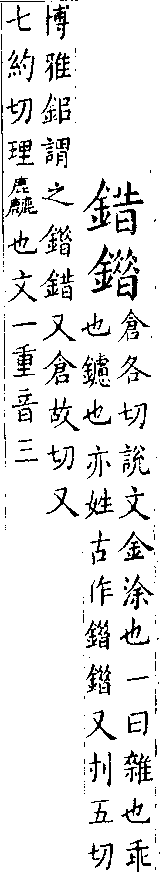 錯鐕
倉各切說文金涂也一曰雜也乖
也鑢也亦姓古作鐕鐕又刌五切
博雅鋁謂之鐕錯又倉故切又
七約切理麤也文一重音三